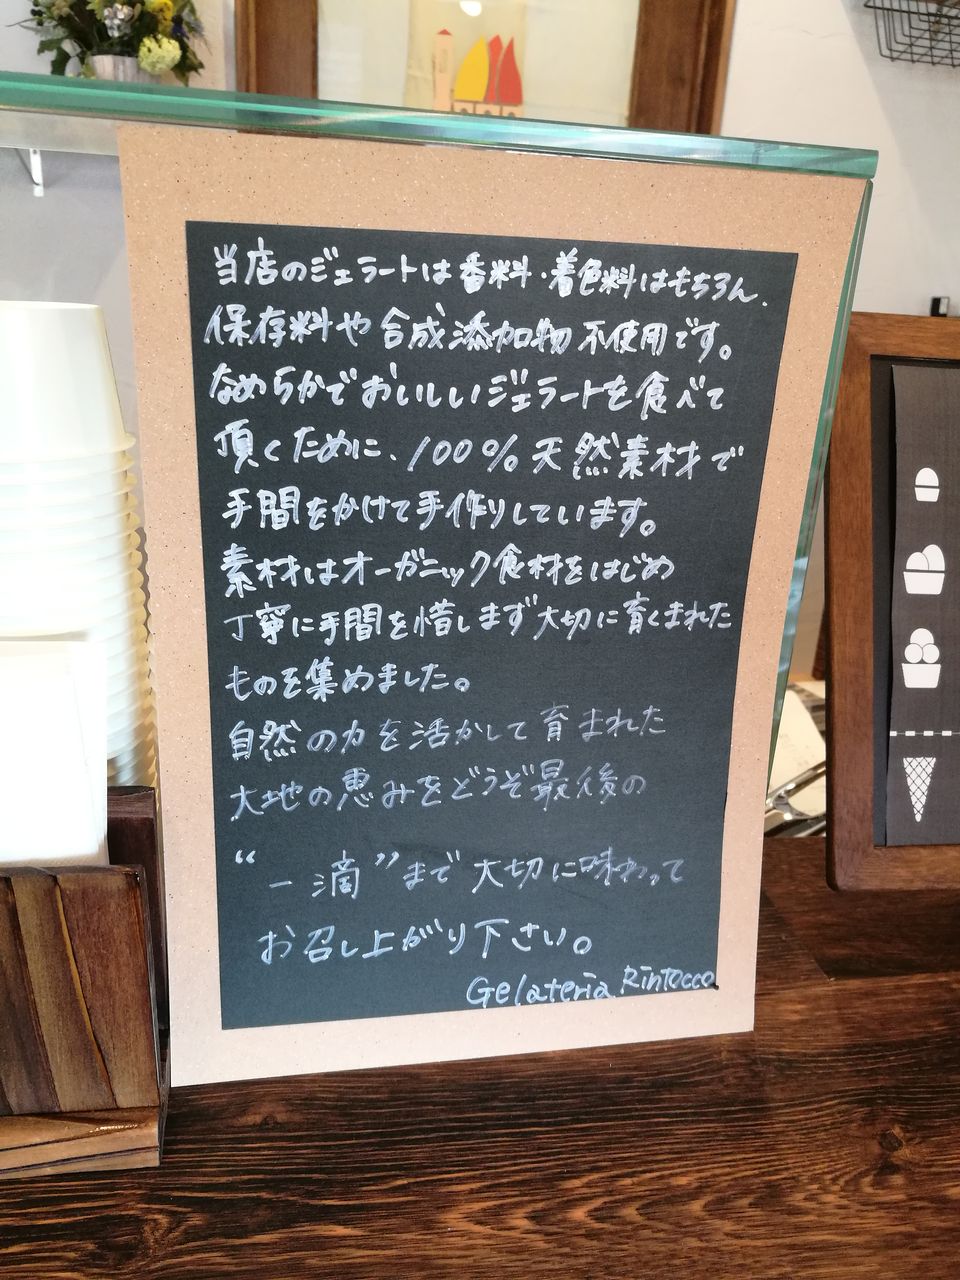 当店のジェラートは香料・着色料はもちろん、
保存料や合成添加物不使用です。
なめらかでおいしいジェラートを食べて
頂くために、100%天然素材で
手間をかけて手作りしています。
素材はオーガニック食材をはじめ
丁寧に手間を惜しまず大切に育くまれた
ものを集めました。
自然の力を活かして育まれた
大地の恵みをどうぞ最後の
“一滴”まで大切に味わって
お召し上がり下さい。
Gelateria Rintocco